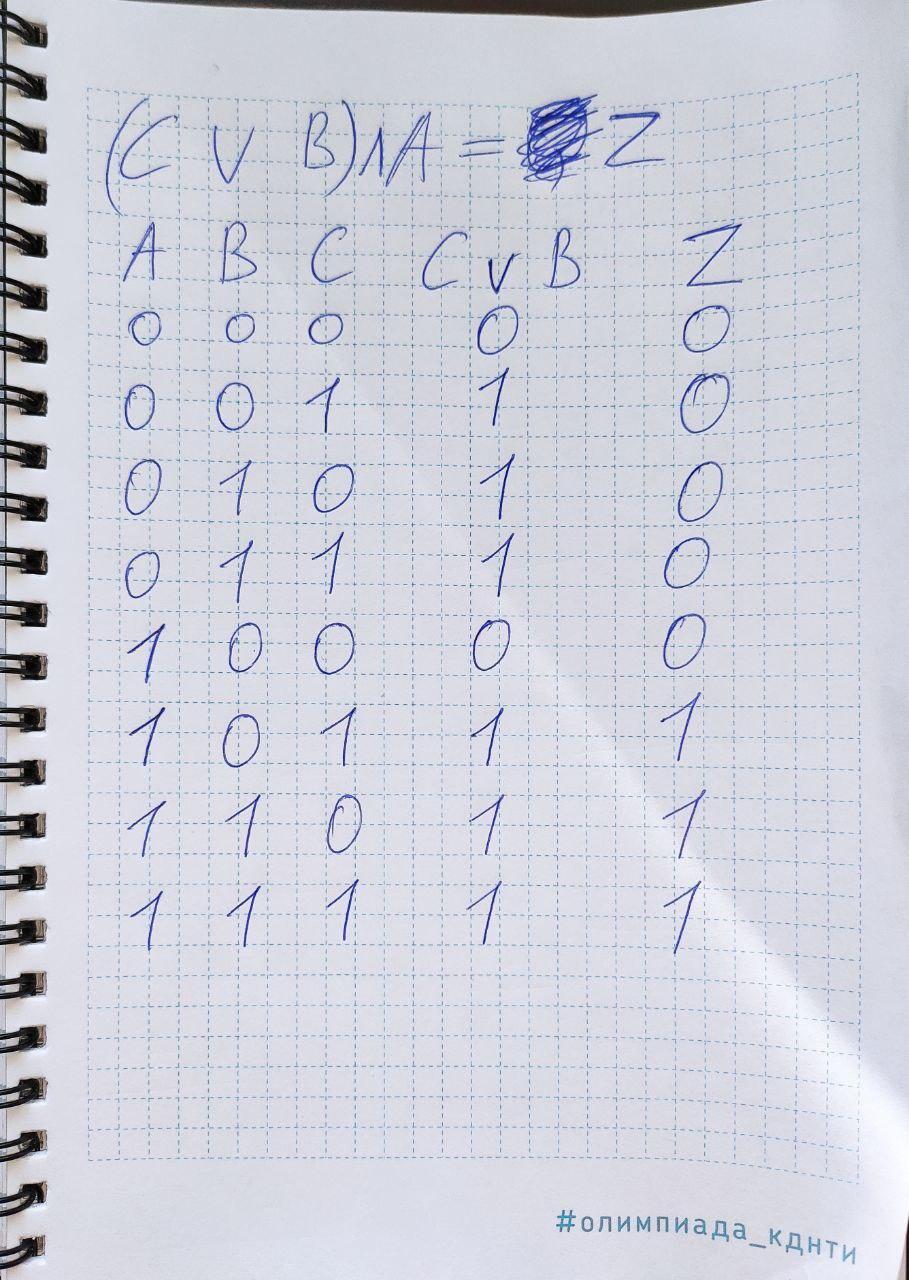 (C V B)∧A = Z
A B C C v B Z
0 0 0 0 0
0 0 1 1 0
0 1 0 1 0
0 1 1 1 0
1 0 0 0 0
1 0 1 1 1
1 1 0 1 1
1 1 1 1 1
#олимпиада_кднти